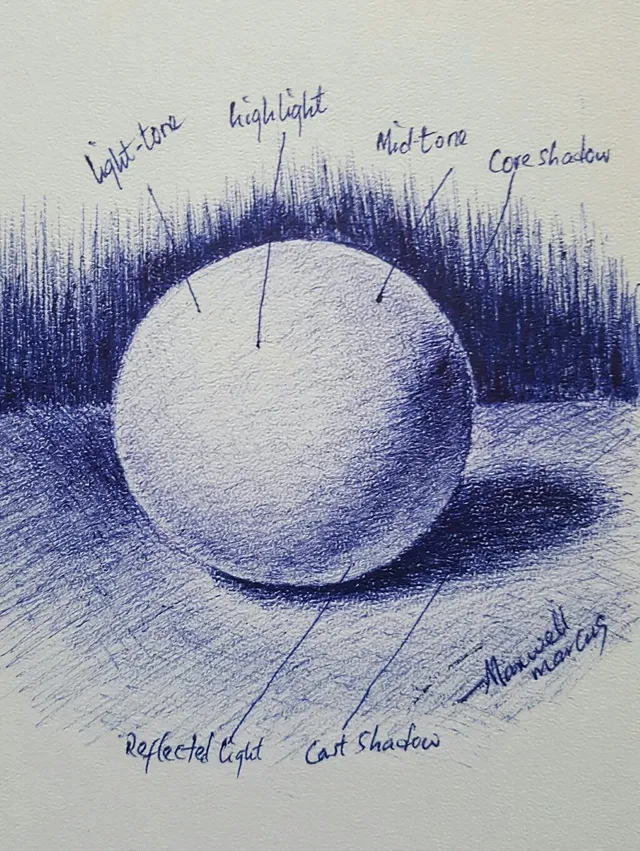 light-tone
highlight
Mid-tone
Core shadow
Maxwell
marcus
Reflected light
Cast Shadow